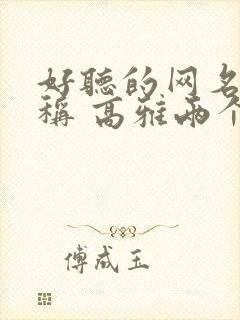 好聽的网名
稱 高雅两个
傅成玉